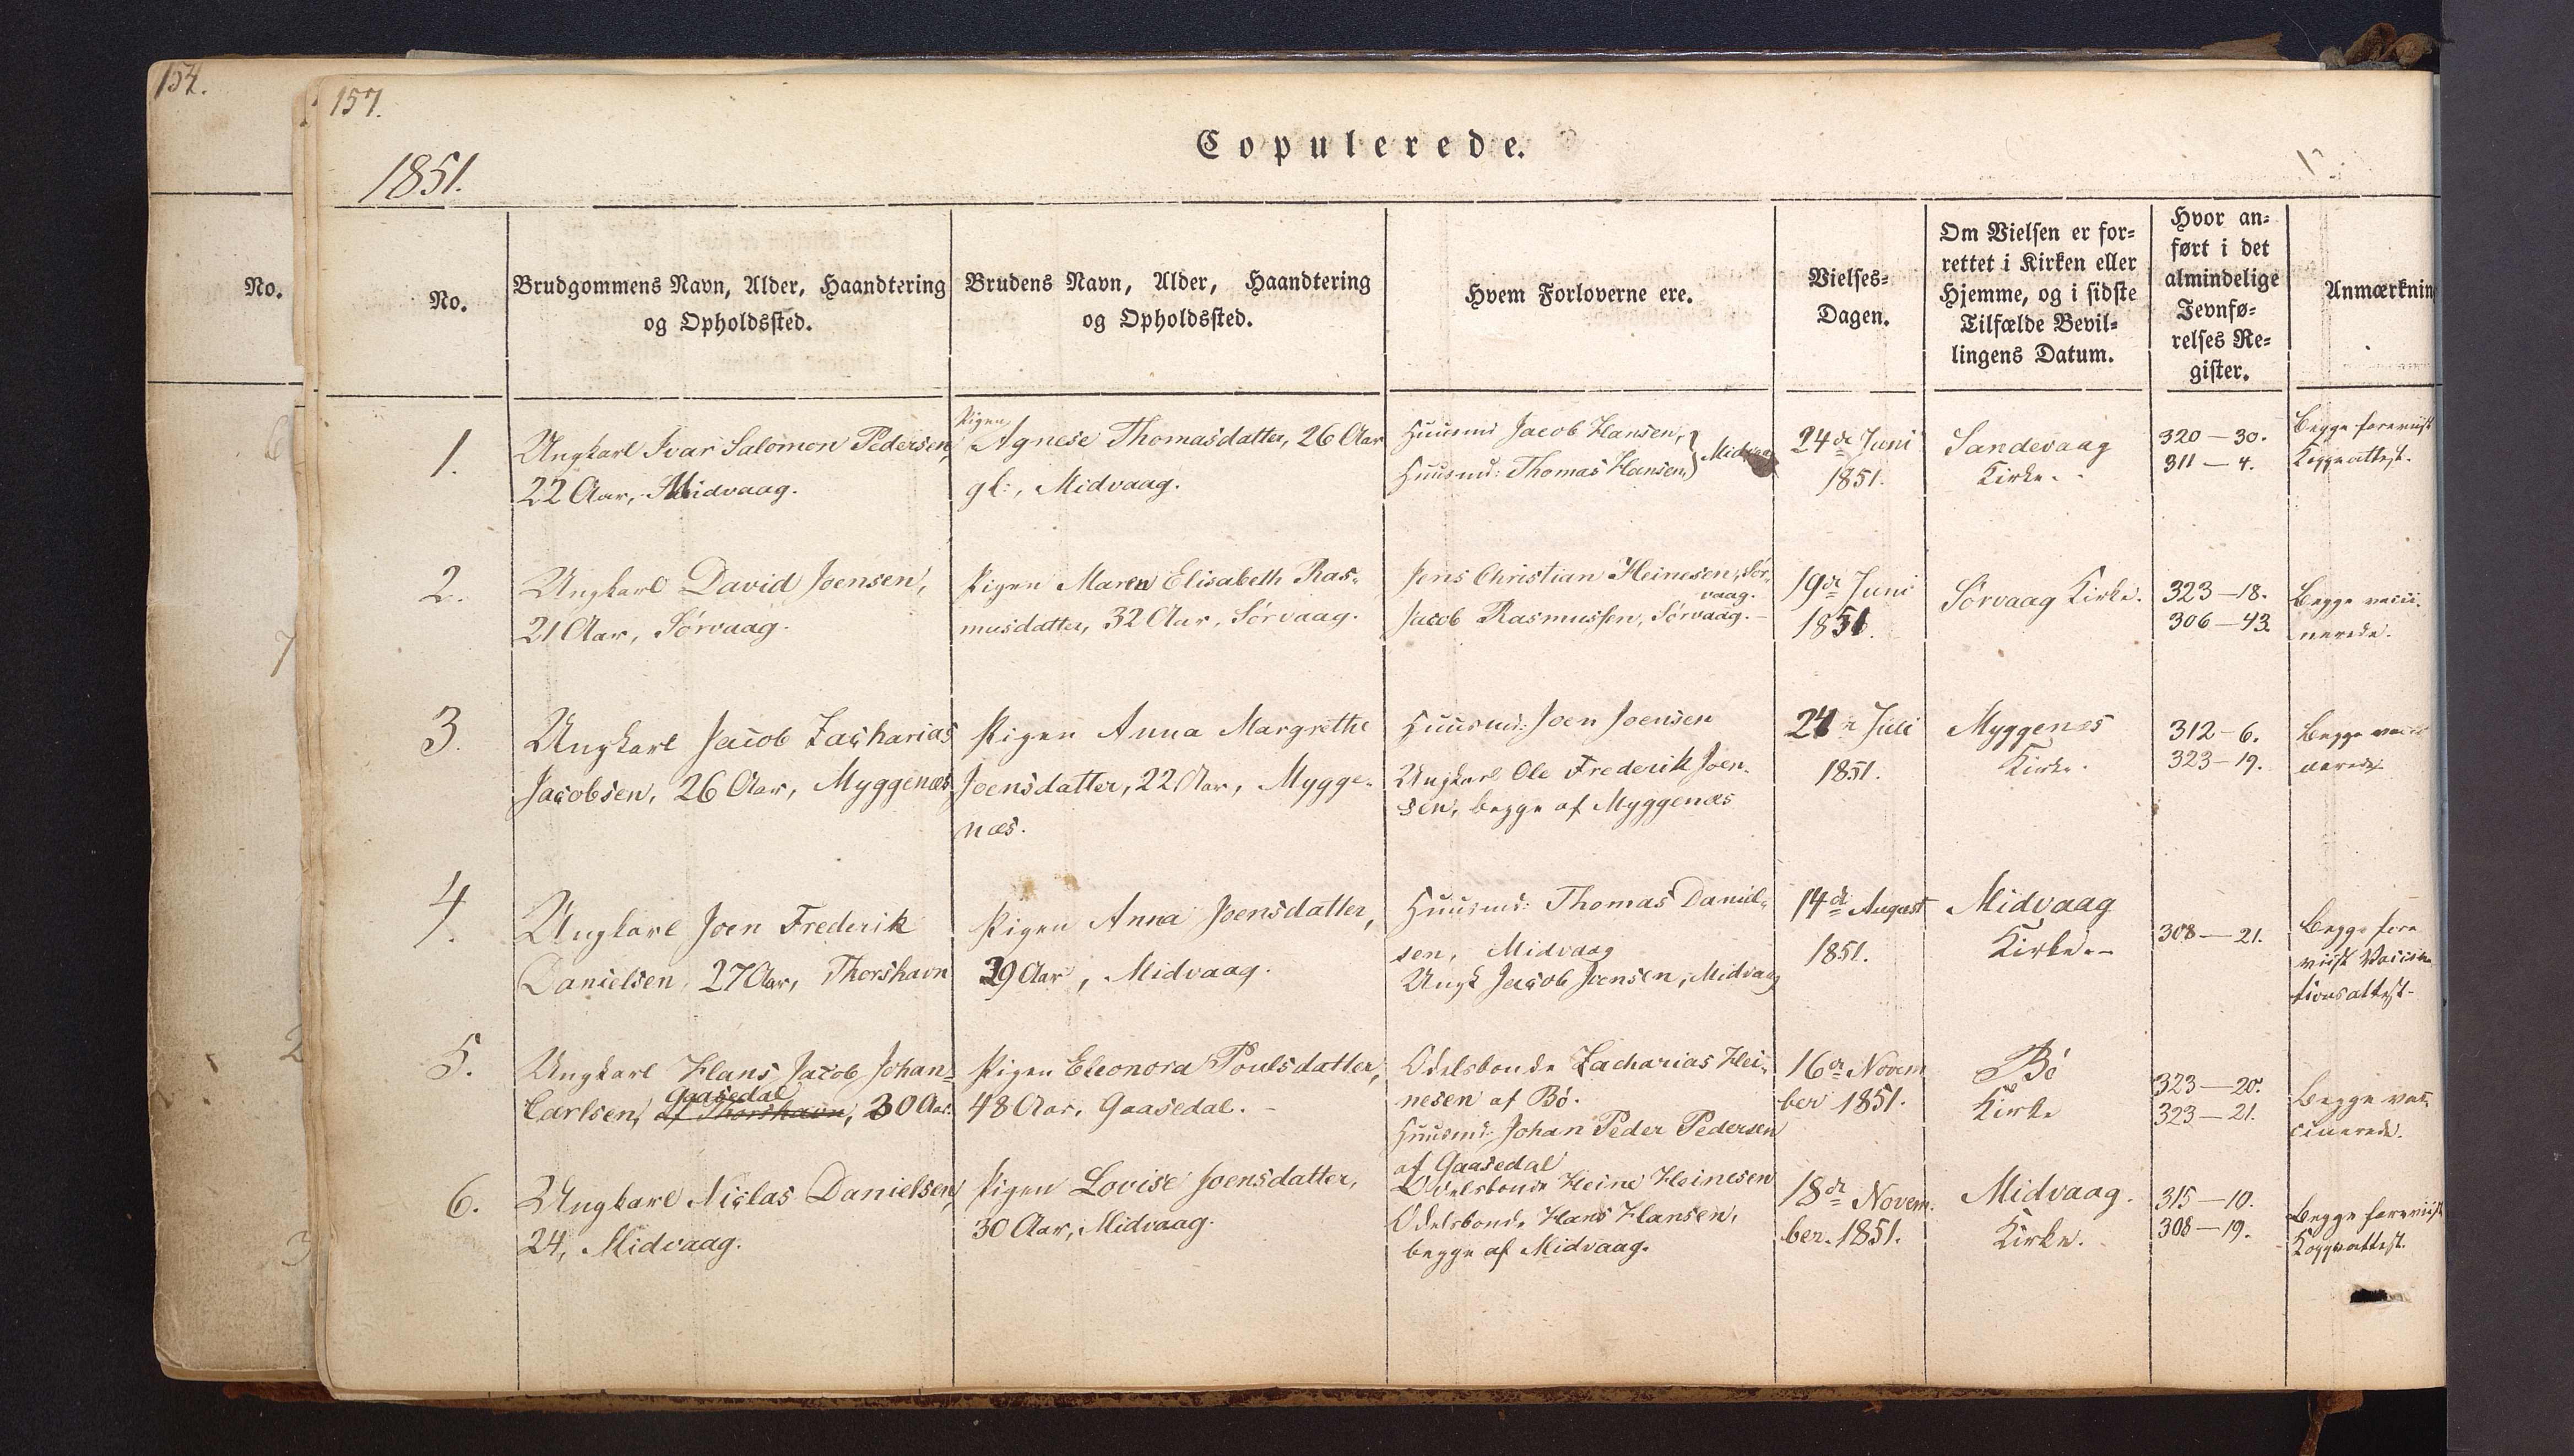 154.
157.
Copulerede.
1851.
No.
No.
Brudgommens Navn, Alder, Haandtering
og Opholdssted.
Brudens Navn, Alder, Haandtering
og Opholdssted.
Hvem Forloverne ere.
Vielses-
Dagen.
Om Vielsen er for-
rettet i Kirken eller
Hjemme, og i sidste
Tilfælde Bevil-
lingens Datum.
Hvor an-
ført i det
almindelige
Jevnfø-
relses Re-
gister.
Anmærknin
1.
Ungkarl Ivar Salomon Pedersen,
22 Aar, Midvaag.
Pigen
Agnese Thomasdatter, 26 Aar
gl:, Midvaag.
Huusmd Jacob Hansen,
Huusmd: Thomas Hansen,
Midvaag
24de Juni
1851.
Sandevaag
Kirke.
320 — 30.
311 — 4.
Begge foreviist
Koppeattest.
2.
Ungkarl David Joensen,
21 Aar, Sørvaag.
Pigen Maren Elisabeth Ras-
musdatter, 32 Aar, Sørvaag.
Jens Christian Heinesen, Sør-
vaag.
Jacob Rasmussen, Sørvaag.
19de Juni
1851.
Sørvaag Kirke.
323 — 18.
306 — 43.
Begge vacci-
nerede.
3.
Ungkarl Jacob Zacharias
Jacobsen, 26 Aar, Myggenæs
Pigen Anna Margrethe
Joensdatter, 22 Aar, Mygge-
næs.
Huusmd: Joen Joensen
Ungkarl Ole Frederik Joen-
sen, begge af Myggenæs
24de Juli
1851.
Myggenæs
Kirke.
312 — 6.
323 — 19.
Begge vacci
nerede.
4.
Ungkarl Joen Frederik
Danielsen, 27 Aar, Thorshavn
Pigen Anna Joensdatter,
39 Aar, Midvaag.
Huusmd: Thomas Daniel-
sen, Midvaag
Ungk Jacob Joensen, Midvaag
14de August
1851.
Midvaag
Kirke.
308 — 21.
Begge fore
viist Vaccina
tionsattest.
5.
Ungkarl Hans Jacob Johan
Carlsen, af Thorshavn, 30 Aar.
Gaasedal
Pigen Eleonora Poulsdatter,
48 Aar, Gaasedal.
Odelsbonde Zacharias Hei-
nesen af Bø.
Huusmd: Johan Peder Pedersen
af Gaasedal
16de Novem
ber 1851.
Bø
Kirke
323 — 20.
323 — 21.
Begge vac-
cinerede.
6.
Ungkarl Niclas Danielsen,
24, Midvaag.
Pigen Lovise Joensdatter,
30 Aar, Midvaag.
Odelsbonde Heine Heinesen
Odelsbonde Hans Hansen,
begge af Midvaag.
18de Novem-
ber. 1851.
Midvaag.
Kirke.
315 — 10.
308 — 19.
Begge foreviist
Koppeattest.